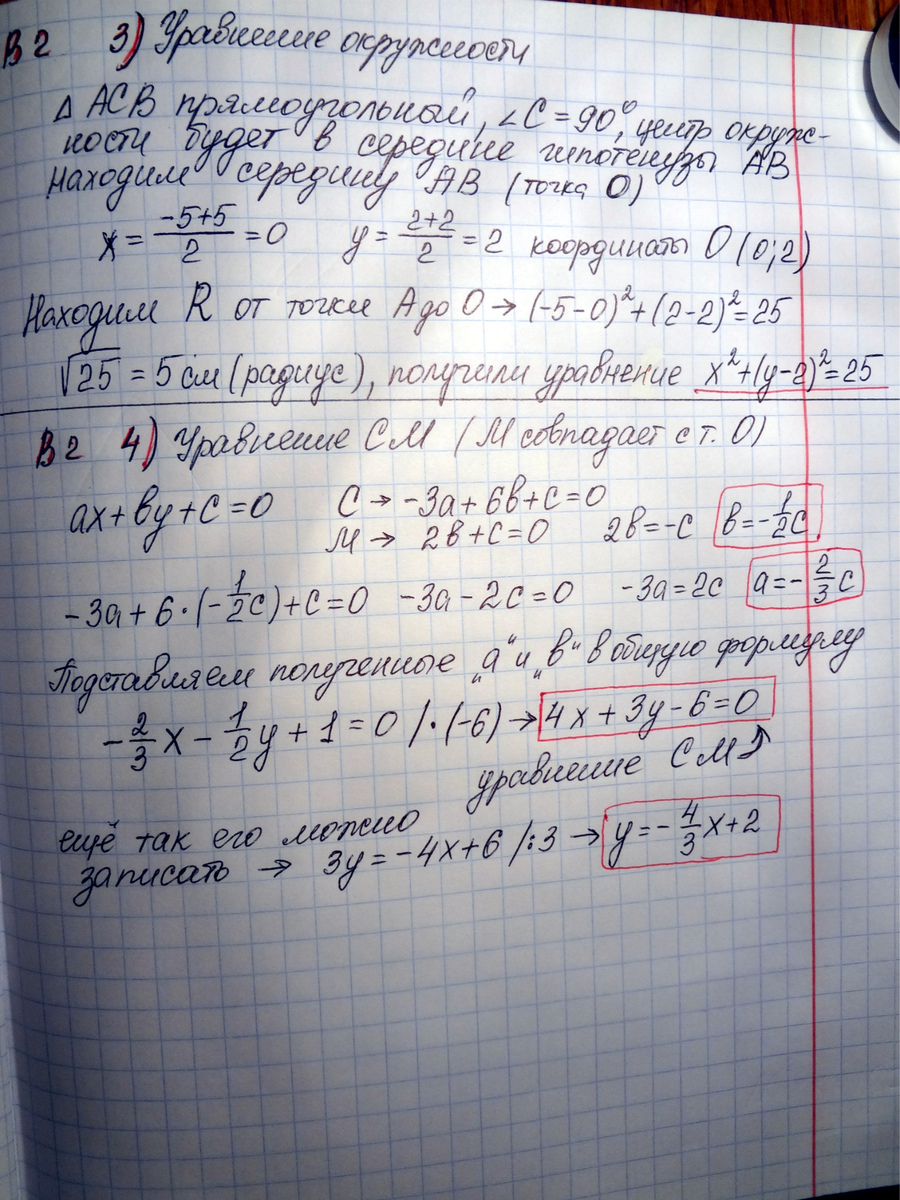 В2 3) Уравнение окружности
Δ АСВ прямоугольный, ∠С = 90°, центр окруж-
ности будет в середине гипотенузы АВ
Находим середину АВ (точка О)
x = (-5+5)/2 = 0 y = (2+2)/2 = 2 координаты О (0;2)
Находим R от точки А до О → (-5-0)²+(2-2)²=25
√25 = 5 см (радиус), получили уравнение x²+(y-2)²=25
В2 4) Уравнение СМ (М совпадает с т. О)
ax+вy+c=0 С → -3a+6в+c=0
М → 2в+c=0 2в=-c в=-1/2c
-3a+6·(-1/2c)+c=0 -3a-2c=0 -3a=2c a=-2/3c
Подставляем полученные „а" и „в" в общую формулу
-2/3x - 1/2y + 1 = 0 /·(-6) → 4x+3y-6=0
уравнение СМ
ещё так его можно
записать → 3y=-4x+6 /:3 → y=-4/3x+2